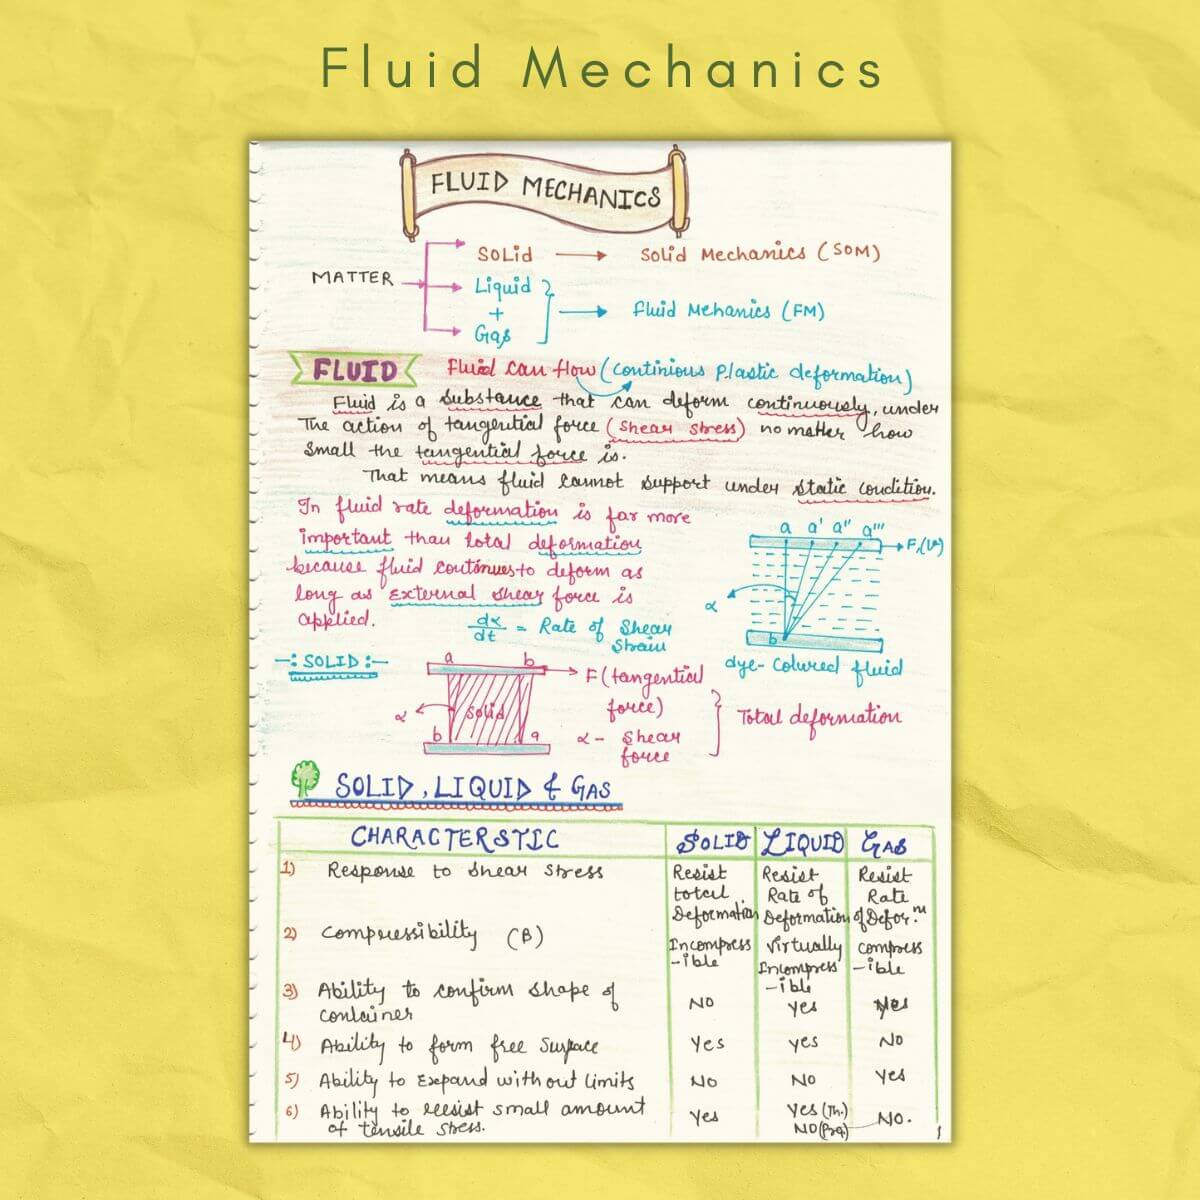 Fluid Mechanics
FLUID MECHANICS
MATTER
SOLid → Solid Mechanics (SOM)
Liquid
+
Gas
→ fluid Mehanics (FM)
FLUID
Fluid can flow (continious plastic deformation)
Fluid is a substance that can deform continuously, under
The action of tangential force (shear stress) no matter how
small the tangential force is.
That means fluid cannot support under static condition.
In fluid rate deformation is far more
important than total deformation
because fluid continues to deform as
long as External shear force is
applied.
dα/dt = Rate of Shear
Strain
a a' a'' a'''
F,
α
b
dye- coloured fluid
-: SOLID :-
a b
F (tangential
force)
α
Solid
b a
α - Shear
force
Total deformation
SOLID, LIQUID & GAS
CHARACTERSTIC SOLID LIQUID GAS
1) Response to Shear Stress
Resist
total
Deformation
Resist
Rate of
Deformation
Resist
Rate
of Defor.m
2) Compressibility (B)
Incompress
-ible
Virtually
Incompress
-ible
compress
-ible
3) Ability to confirm shape of
container
NO yes yes
4) Ability to form free Surface yes yes No
5) Ability to Expand without Limits NO NO yes
6) Ability to resist small amount
of tensile stress.
yes
yes (Th.)
NO
No.
1